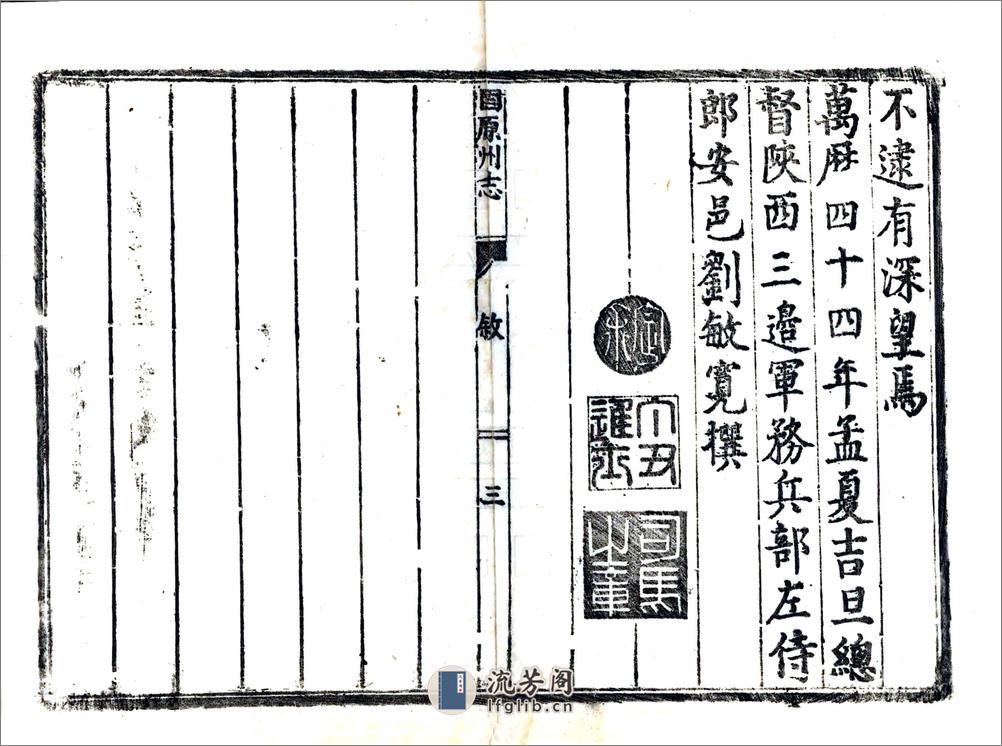 不逮有深望焉
萬厤四十四年孟夏吉旦總
督陝西三邊軍務兵部左侍
郎安邑劉敏寬撰
丁丑
進士
司馬
之章
固原州志
敘
三
流芳阁
lfglib.cn